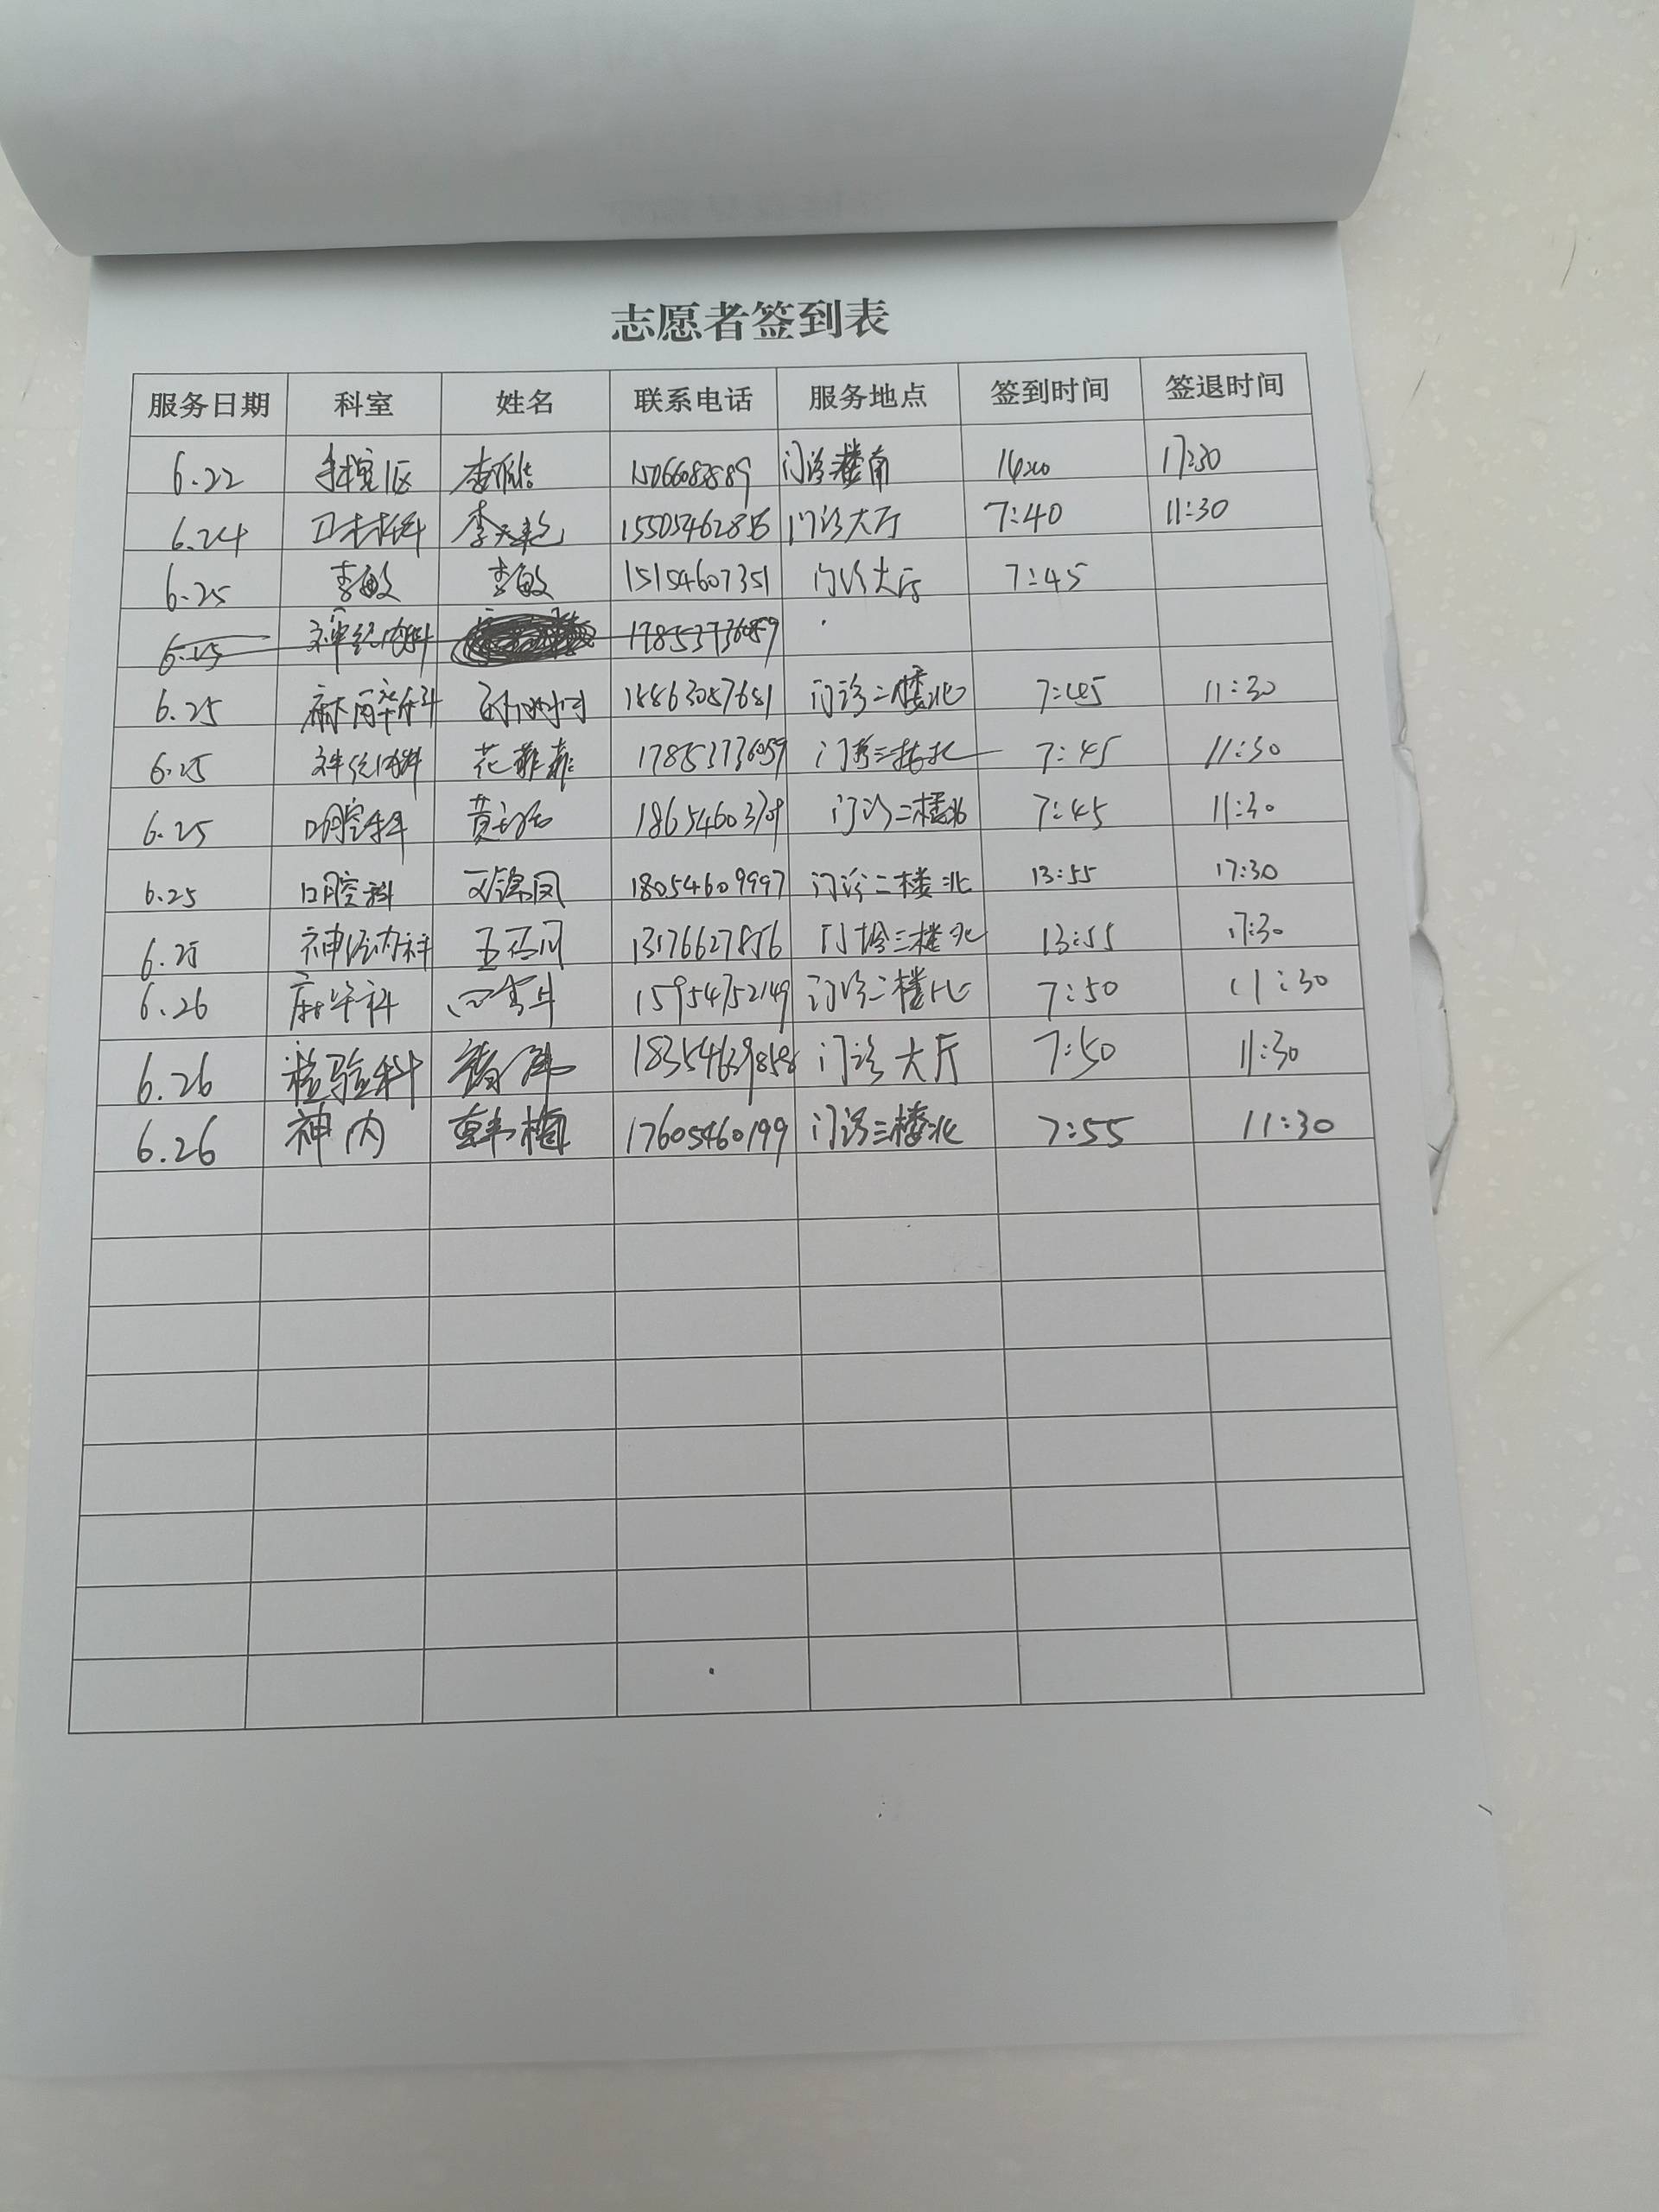 志愿者签到表
服务日期 科室 姓名 联系电话 服务地点 签到时间 签退时间
6.22 门诊楼南 17:30
6.24 15505462856 门诊大厅 7:40 11:30
6.25 李敏 李敏 15154607351 门诊大厅 7:45
6.25 神经内科 17853736059
6.25 麻醉科 18863087681 门诊二楼北 7:45 11:30
6.25 神经内科 17853736059 门诊三楼北 7:45 11:30
6.25 口腔科 门诊二楼北 7:45 11:30
6.25 口腔科 18054609997 门诊二楼北 13:55 17:30
6.25 神经内科 13176627856 门诊三楼北 13:55 17:30
6.26 麻醉科 15954752149 门诊二楼北 7:50 11:30
6.26 检验科 18354639858 门诊大厅 7:50 11:30
6.26 神内 韩梅 17605460199 门诊三楼北 7:55 11:30